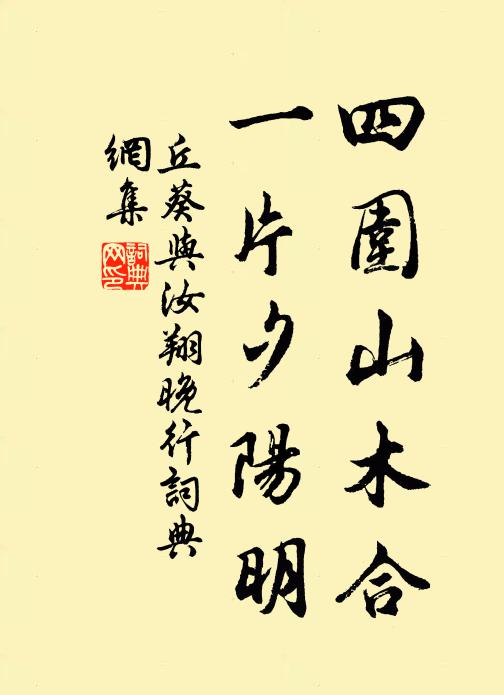 四圍山木合
一片夕陽明
丘葵與汝翔晚行詞典
網集
詞典
网印